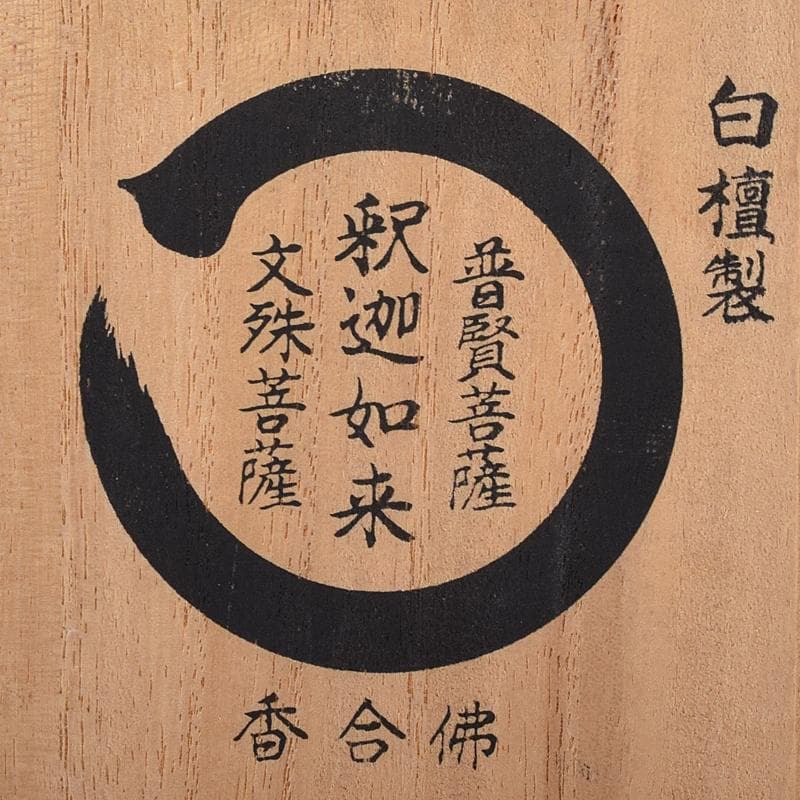 白檀製
普賢菩薩
釈迦如来
文殊菩薩
香合佛